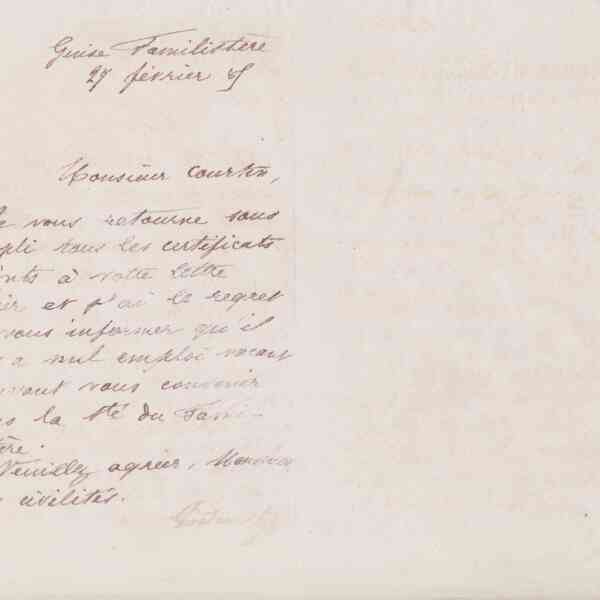 Guise Familistère
27 février 85
Monsieur Courtin,
Je vous retourne sous
pli tous les certificats
joints à votre lettre
et j'ai le regret
vous informer qu'il
a nul emploi vacant
pouvant vous convenir
la Sté du Fami-
tère.
Veuillez agréer, Monsieur
civilités.